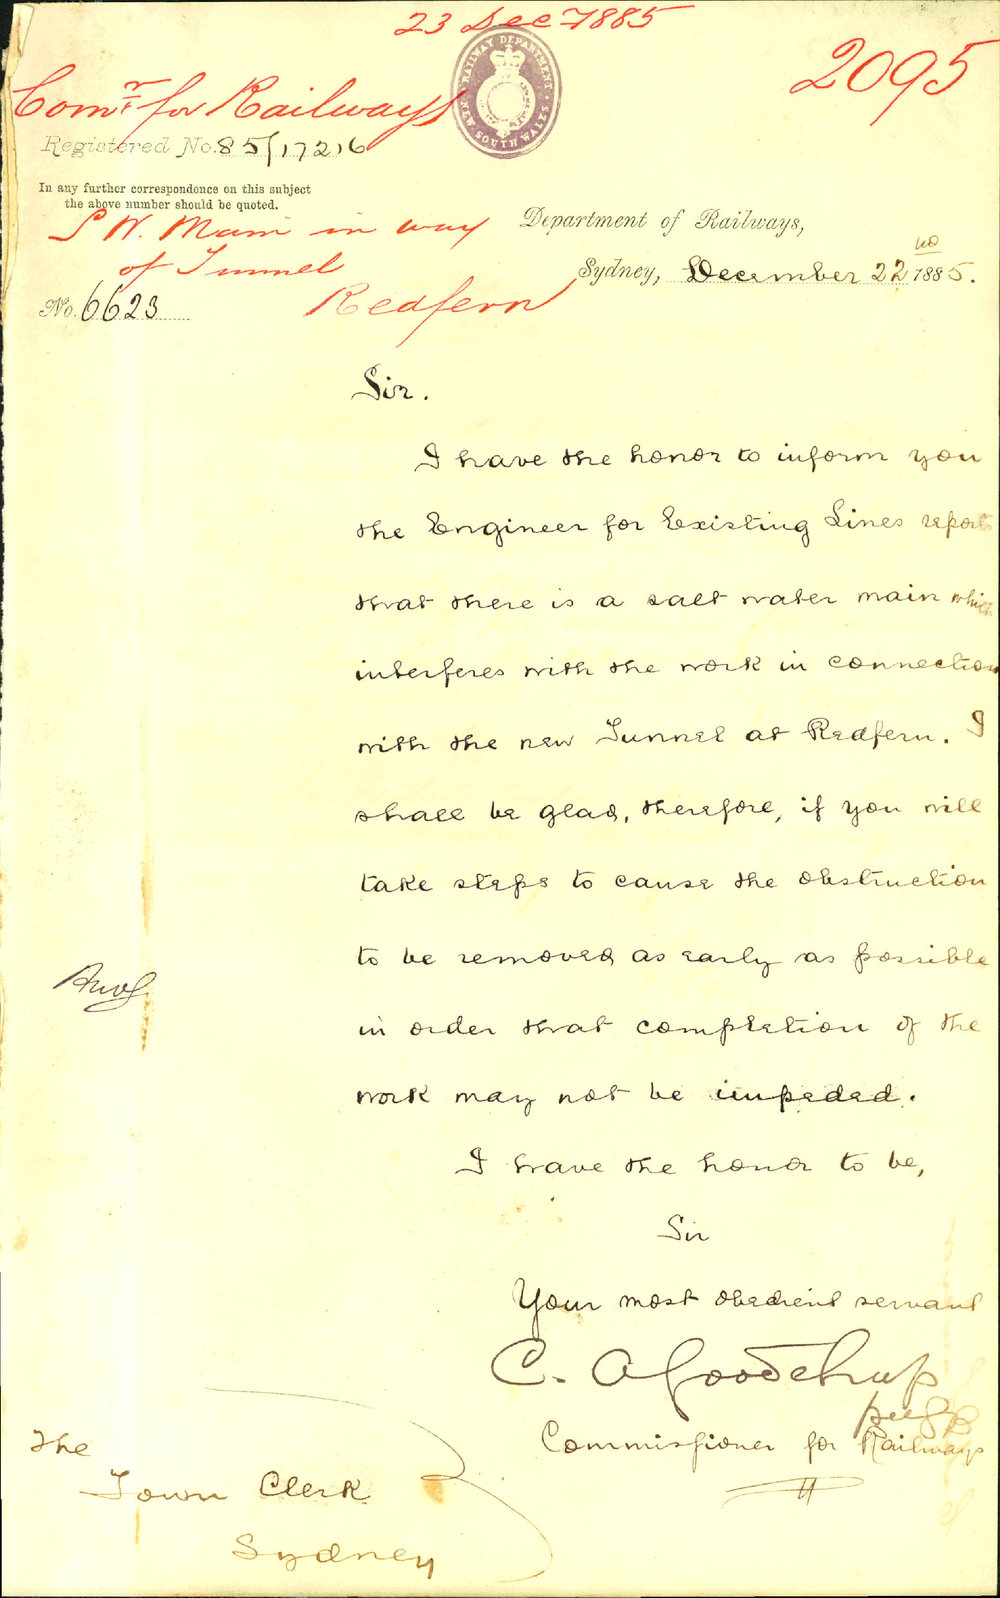 23 Dec 1885
2095
Comr for Railways
RAILWAY DEPARTMENT
NEW SOUTH WALES
Registered No. 85/17216
In any further correspondence on this subject
the above number should be quoted.
S W. Main in way
of Tunnel
Redfern
Department of Railways,
Sydney, December 22nd 1885.
No. 6623
Sir.
I have the honor to inform you
the Engineer for Existing Lines reports
that there is a salt water main which
interferes with the work in connection
with the new Tunnel at Redfern. I
shall be glad, therefore, if you will
take steps to cause the obstruction
to be removed as early as possible
in order that completion of the
work may not be impeded.
I have the honor to be,
Sir
Your most obedient servant
C. A Goodchap
Commissioner for Railways
The
Town Clerk
Sydney